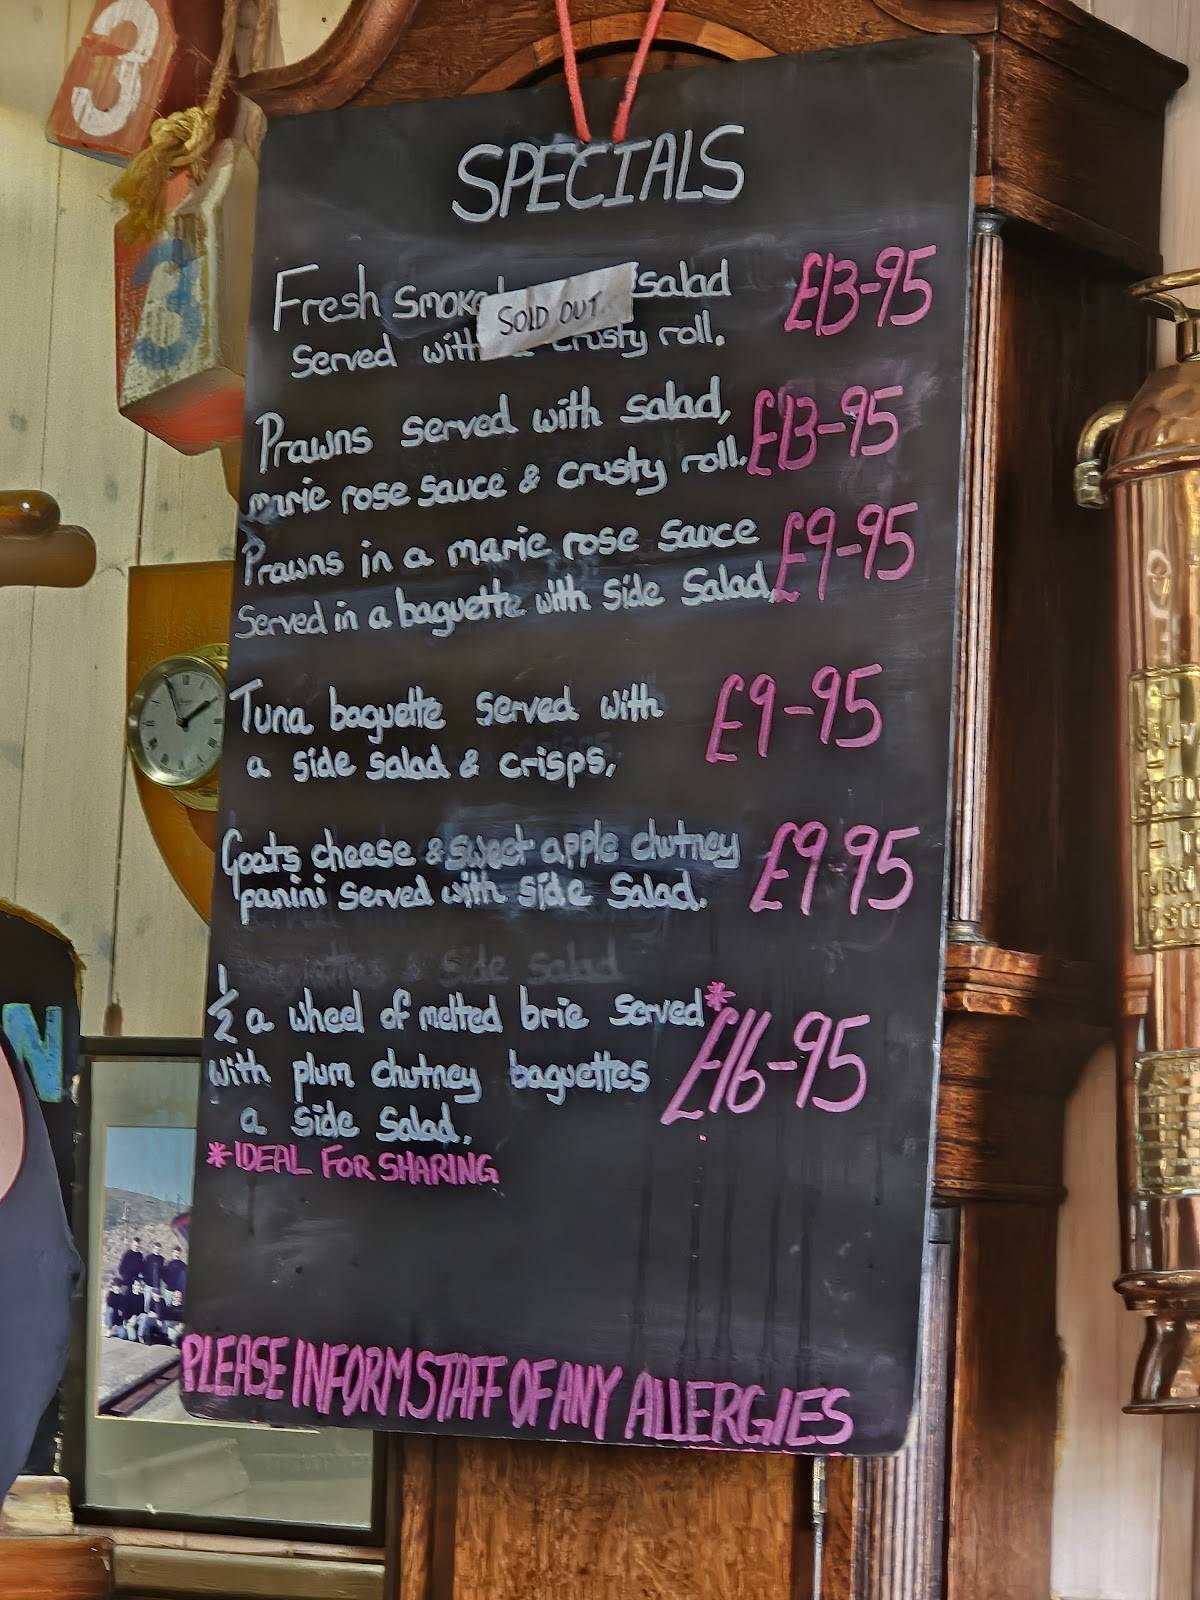 3
3
SPECIALS
Fresh Smoked salad £13-95
SOLD OUT.
Served with a crusty roll.
Prawns served with salad, £13-95
marie rose sauce & crusty roll.
Prawns in a marie rose sauce £9-95
Served in a baguette with side Salad,
Tuna baguette served with £9-95
a side salad & crisps,
Goats cheese & sweet apple chutney £9-95
panini Served with side Salad.
1/2 a wheel of melted brie served* £16-95
with plum chutney baguettes
a side Salad.
*IDEAL FOR SHARING
PLEASE INFORM STAFF OF ANY ALLERGIES
N